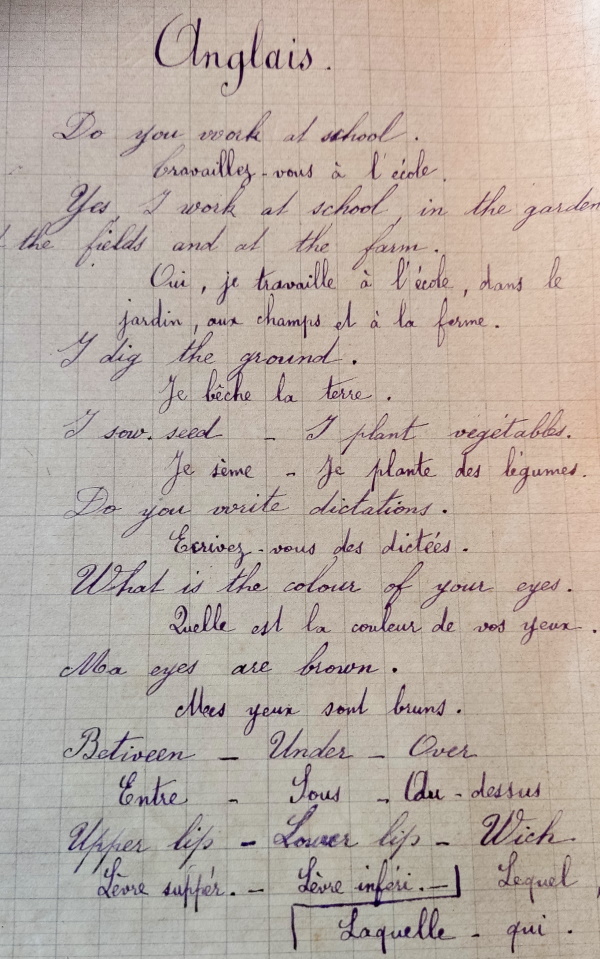 Anglais.
Do you work at school.
Travaillez-vous à l'école.
Yes, I work at school, in the garden
the fields and at the farm.
Oui, je travaille à l'école, dans le
jardin, aux champs et à la ferme.
I dig the ground.
Je bêche la terre.
I sow. seed - I plant vegétables.
Je sème - Je plante des légumes.
Do you write dictations.
Ecrivez-vous des dictées.
What is the colour of your eyes.
Quelle est la couleur de vos yeux.
Ma eyes are brown.
Mes yeux sont bruns.
Betiveen - Under - Over
Entre - Sous - Au-dessus
Upper lip - Lower lip - Wich
Lèvre suppér. - Lèvre inféri. - Lequel,
Laquelle - qui.